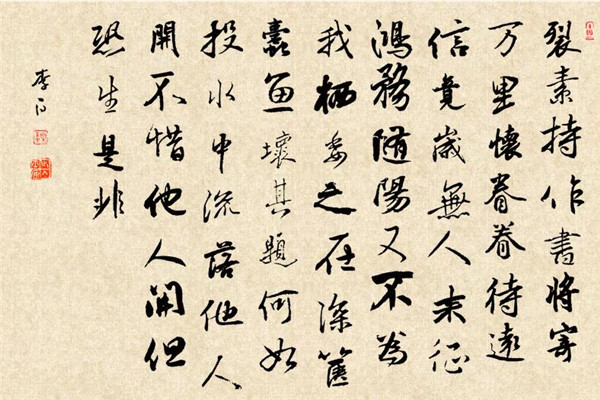 裂素持作書將寄
万里懷眷眷待遠
信竟歲無人来征
鴻務随陽又不為
我栖委之在深篋
蠹魚壞其題何如
投水中流落他人
開不惜他人開但
恐生是非
李白